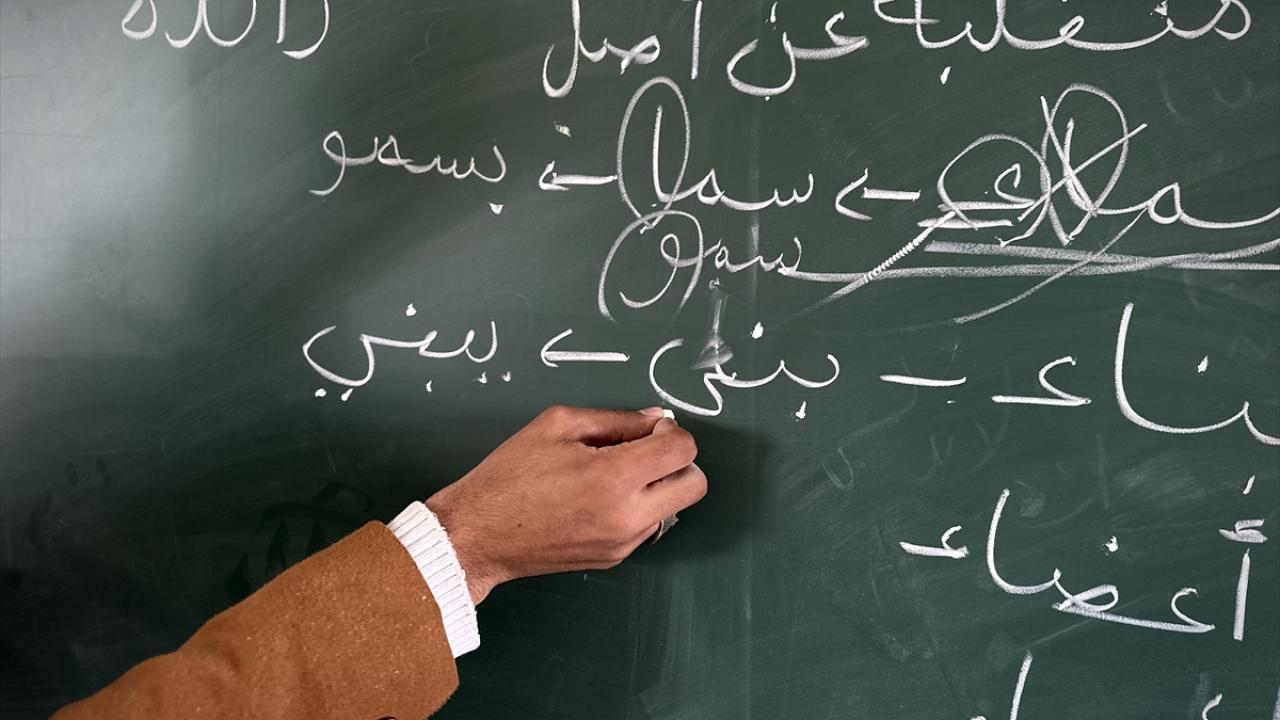 منقلبة عن أصل زائدة
سماء ← سما ← يسمو
سمو
بناء - بنى ← يبني
أعضاء